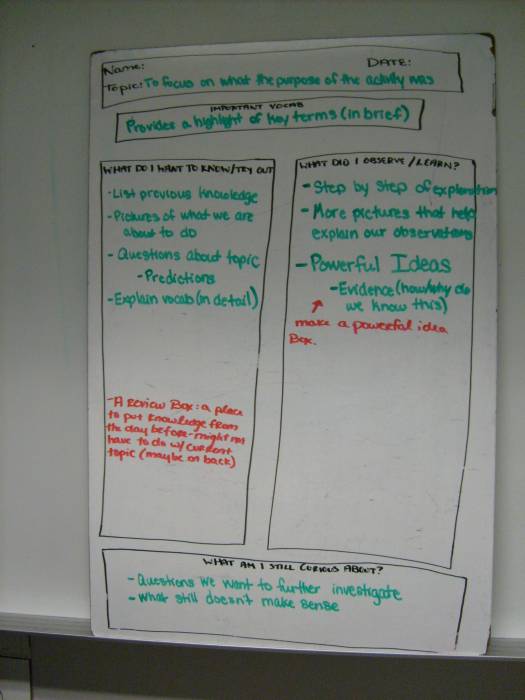 Name: DATE:
Topic: To focus on what the purpose of the activity was
IMPORTANT VOCAB
Provides a highlight of key terms (in brief)
WHAT DO I WANT TO KNOW/TRY OUT
- List previous knowledge
- Pictures of what we are
about to do
- Questions about topic
- Predictions
- Explain vocab (in detail)
- A Review Box: a place
to put knowledge from
the day before - might not
have to do w/ current
topic (maybe on back)
WHAT DID I OBSERVE / LEARN?
- Step by step of exploration
- More pictures that help
explain our observations
- Powerful Ideas
- Evidence (how/why do
we know this)
make a powerful idea
Box.
WHAT AM I STILL CURIOUS ABOUT?
- Questions we want to further investigate
- What still doesn't make sense